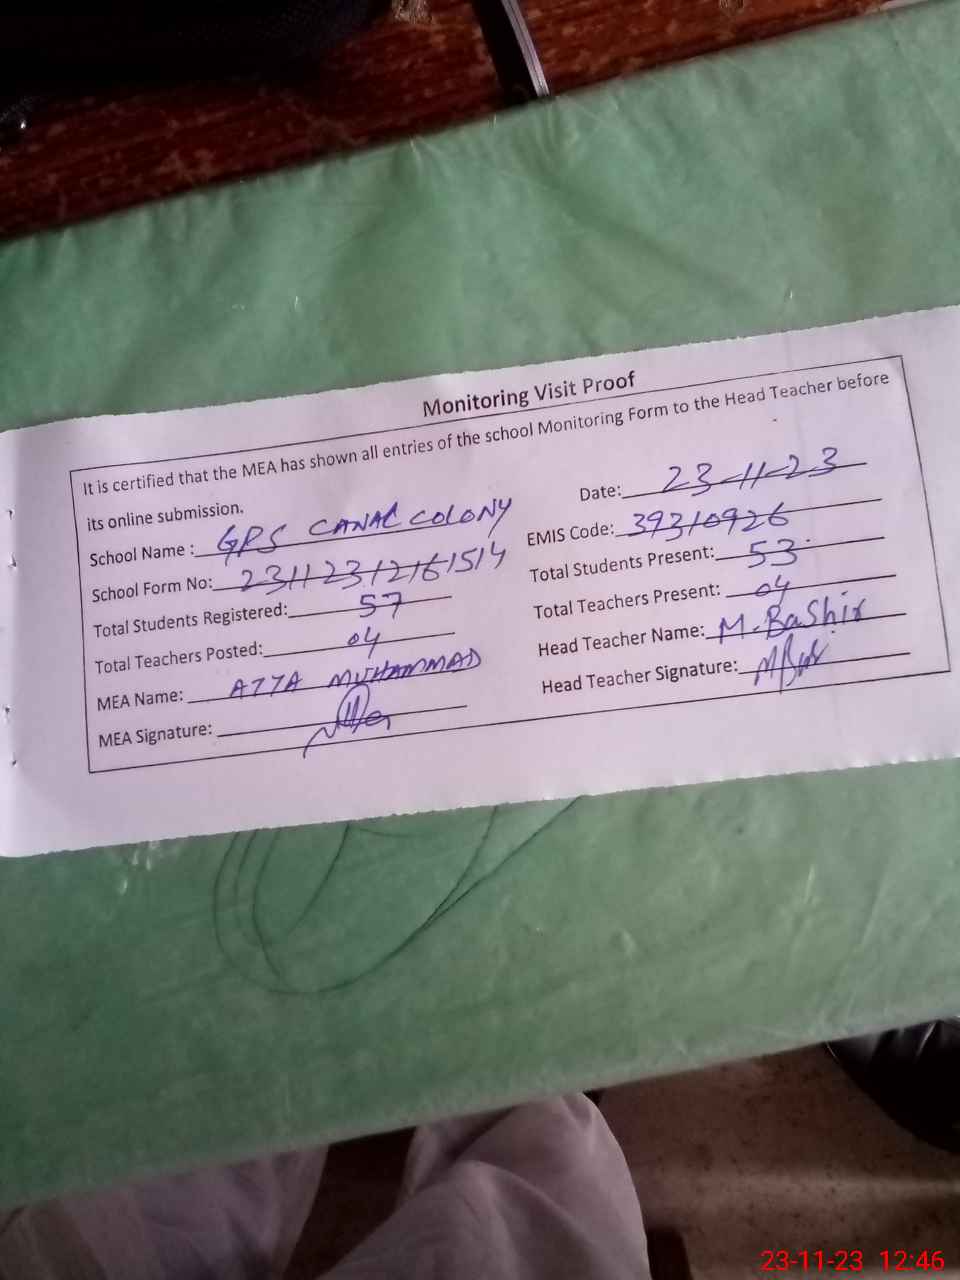 Monitoring Visit Proof
It is certified that the MEA has shown all entries of the school Monitoring Form to the Head Teacher before
its online submission.
Date: 23-11-23
School Name : GPS CANAL COLONY
EMIS Code: 39310926
School Form No: 23112312161514
Total Students Present: 53
Total Students Registered: 57
Total Teachers Present: 04
Total Teachers Posted: 04
Head Teacher Name: M. Bashir
MEA Name: ATTA MUHAMMAD
Head Teacher Signature:
MEA Signature:
23-11-23 12:46